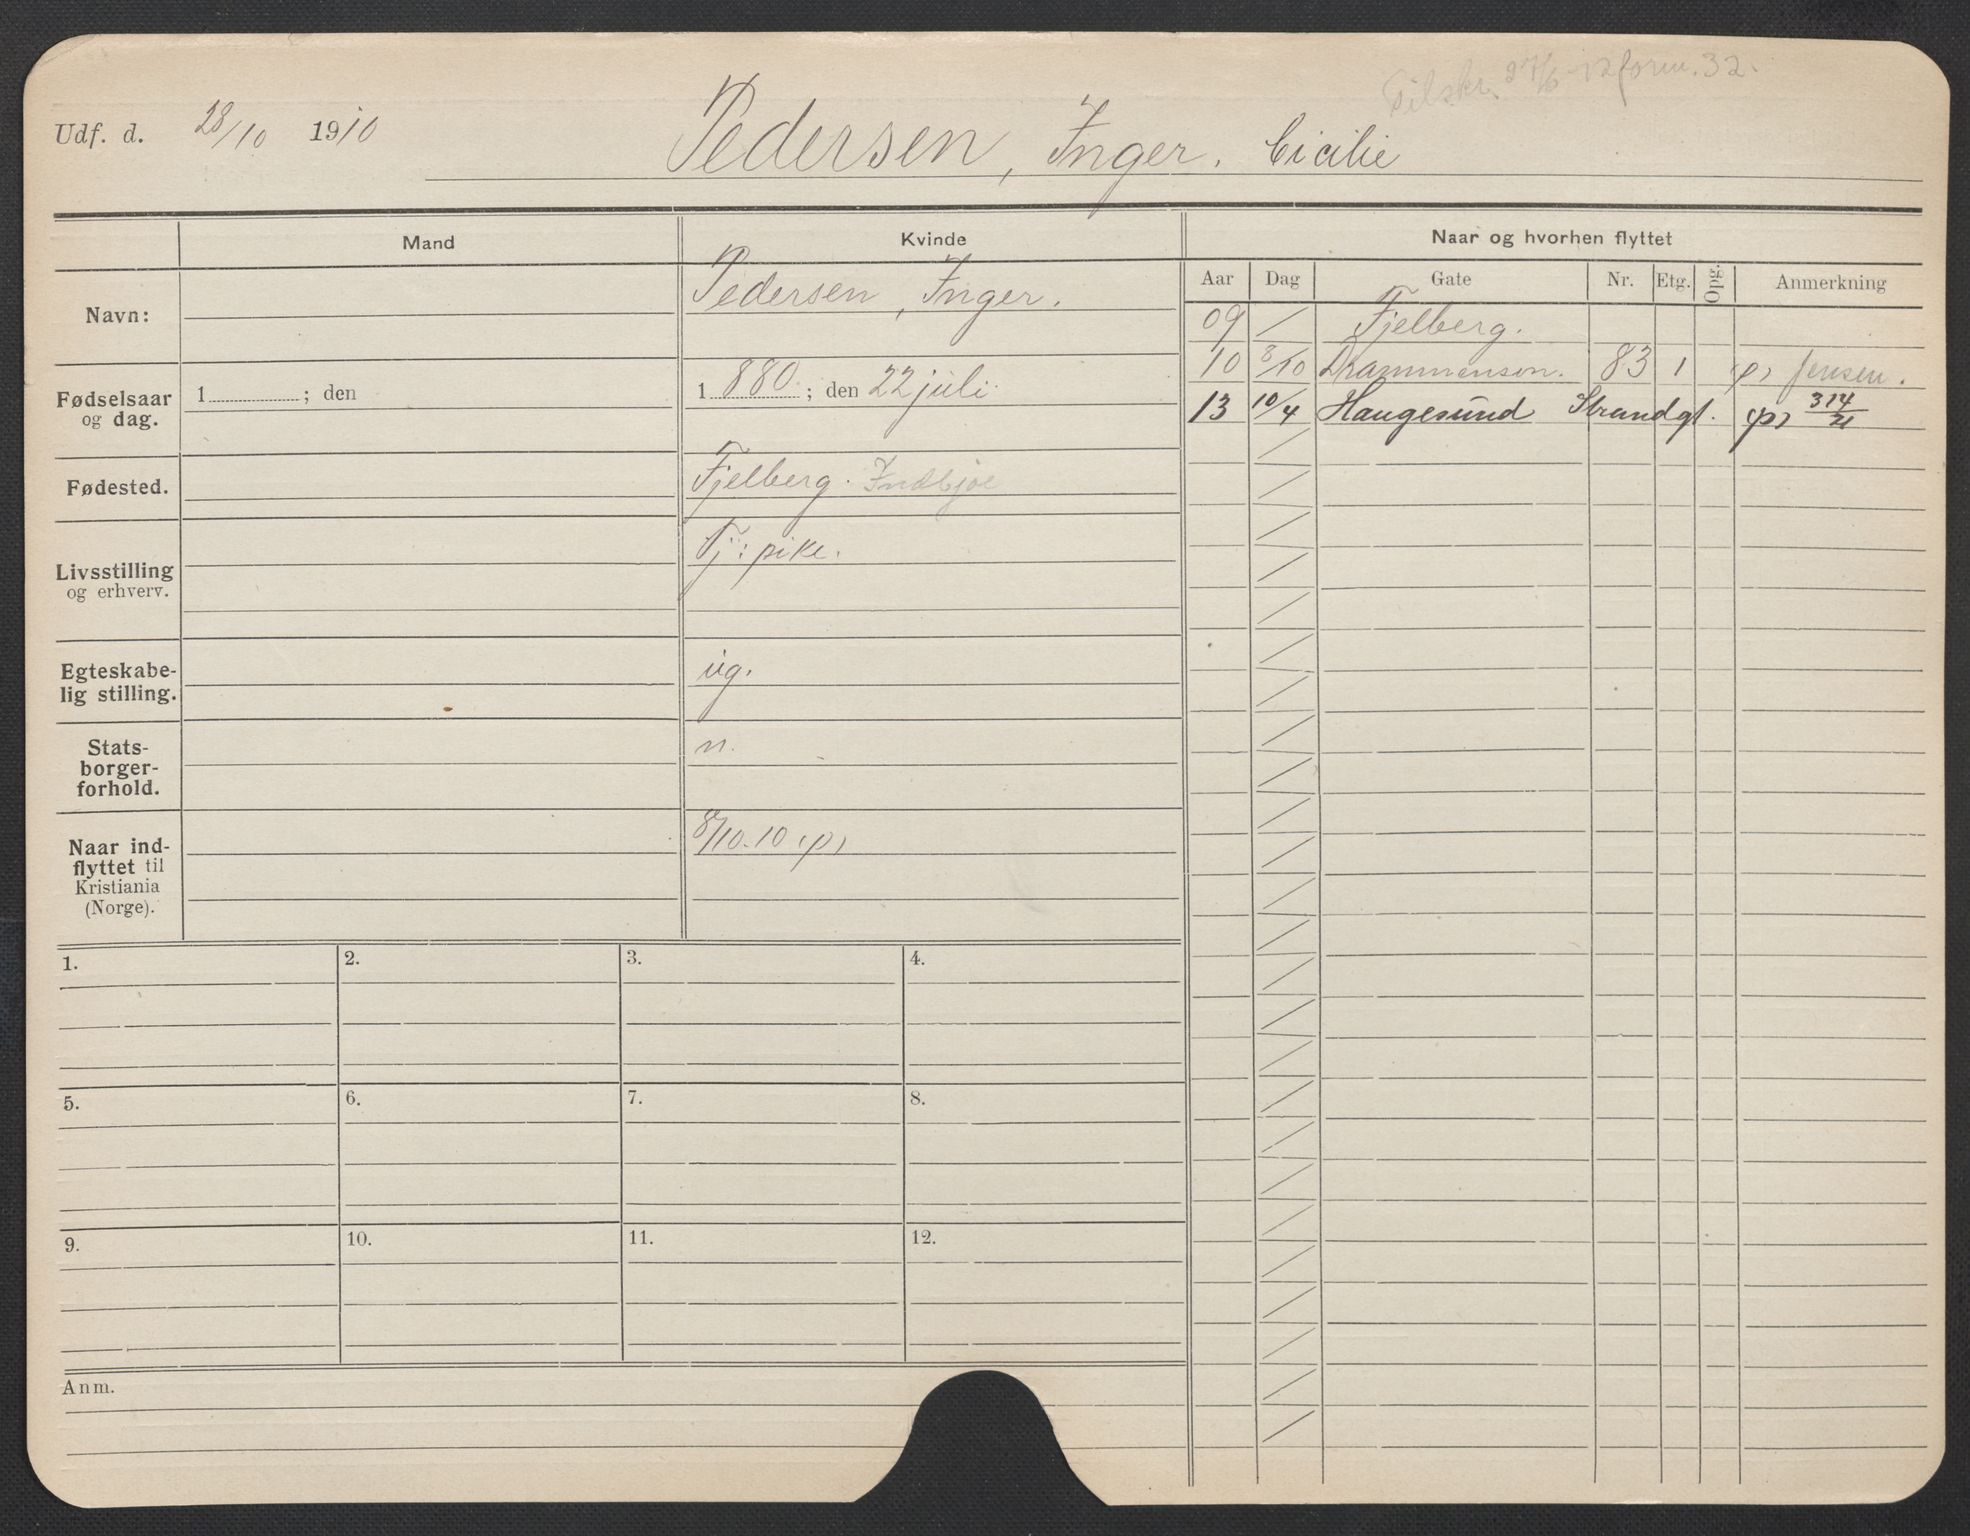 Tilskr. 27/6-12 form. 32.
Udf. d. 28/10 1910 Pedersen, Inger. Cicilie
Mand Kvinde Naar og hvorhen flyttet
Aar Dag Gate Nr. Etg. Opg. Anmerkning
Navn: Pedersen, Inger.
09 Fjelberg.
10 8/10 Drammensvn. 83 1 (p) Jensen.
13 10/4 Haugesund Strandgt. (p) 314/21
Fødselsaar og dag. 1 ; den 1 880 ; den 22 juli
Fødested. Fjelberg. Indbjoe
Livsstilling og erhverv. Tj: pike.
Egteskabe-
lig stilling. ug.
Stats-
borger-
forhold. n.
Naar ind-
flyttet til
Kristiania
(Norge). 8/10.10 (p)
1. 2. 3. 4.
5. 6. 7. 8.
9. 10. 11. 12.
Anm.